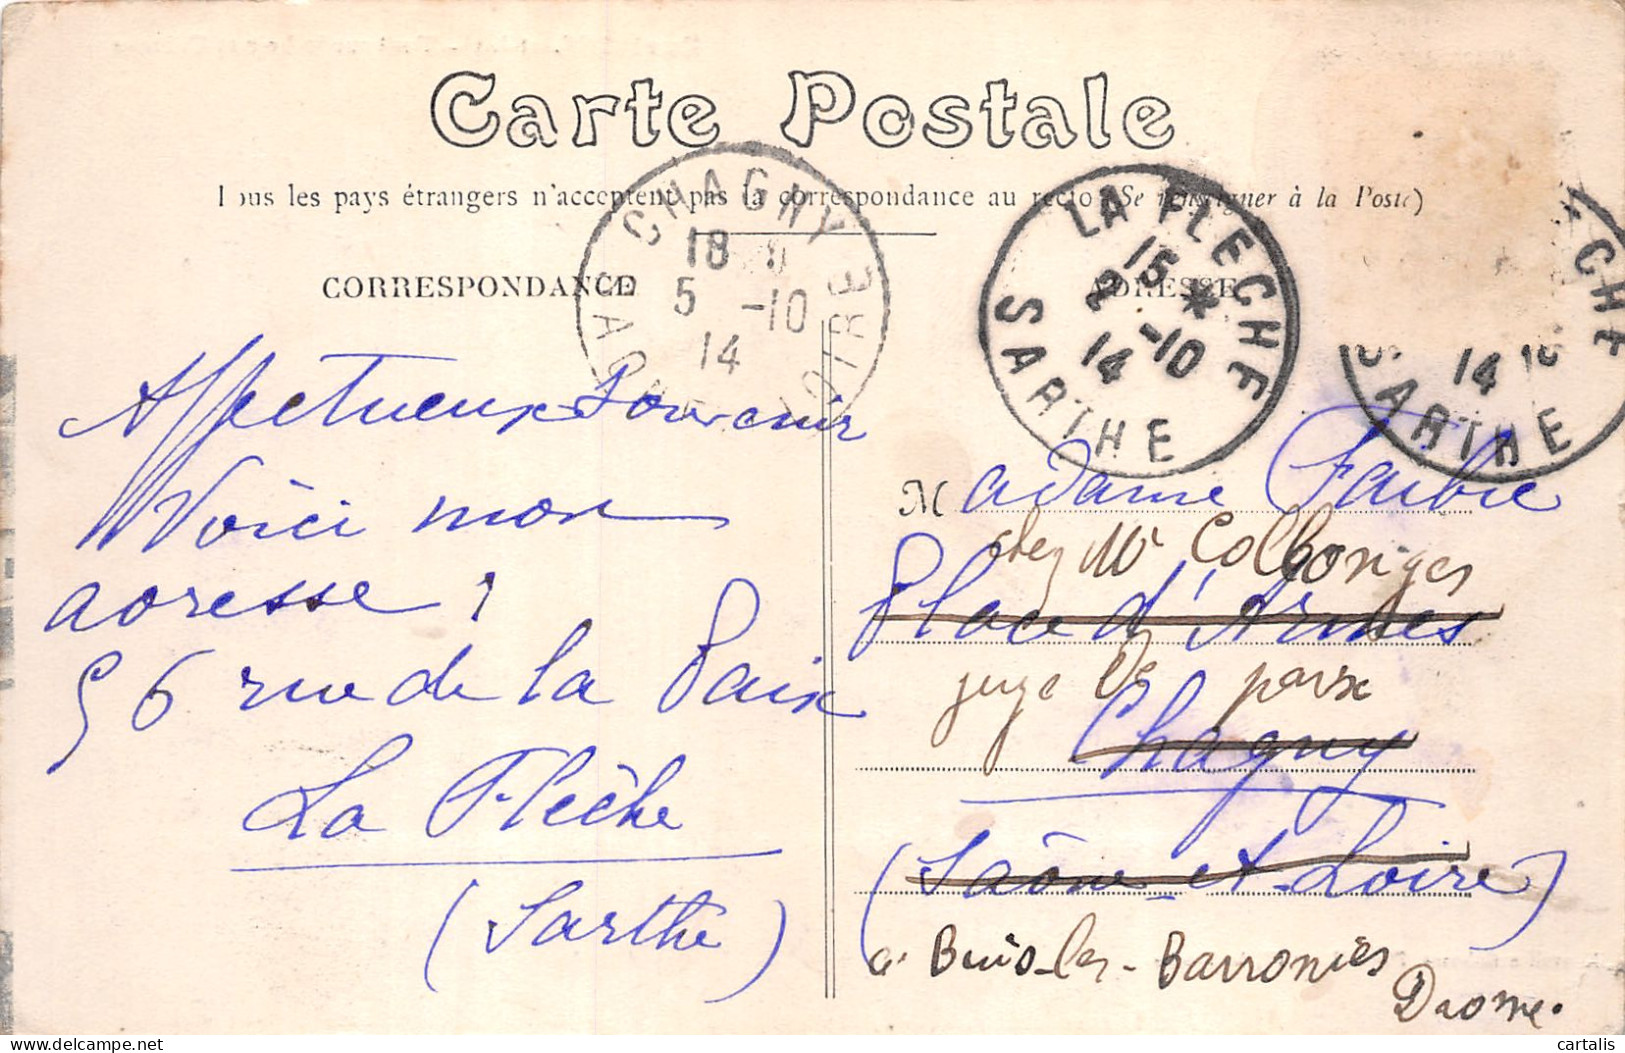 Carte Postale
Tous les pays étrangers n'acceptent pas la correspondance au recto (Se renseigner à la Poste)
CORRESPONDANCE
ADRESSE
CHAGNY
18
5 -10
14
SAONE ET LOIRE
LA FLECHE
15 *
2 -10
14
SARTHE
CHE
14
SARTHE
Affectueux Souvenir
Voici mon
adresse :
56 rue de la Paix
La Flèche
(Sarthe)
Madame Faivre
chez Mr Collonges
Place d'Armes
juge de paix
Chagny
(Saône-et-Loire)
a Buis-les-Barronies
Drome.
delcampe.net
cartalis